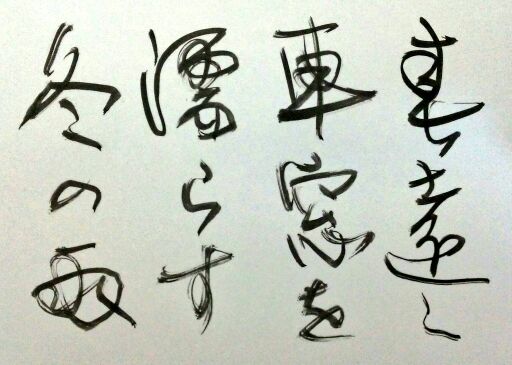 春遠し
車窓を
濡らす
冬の雨